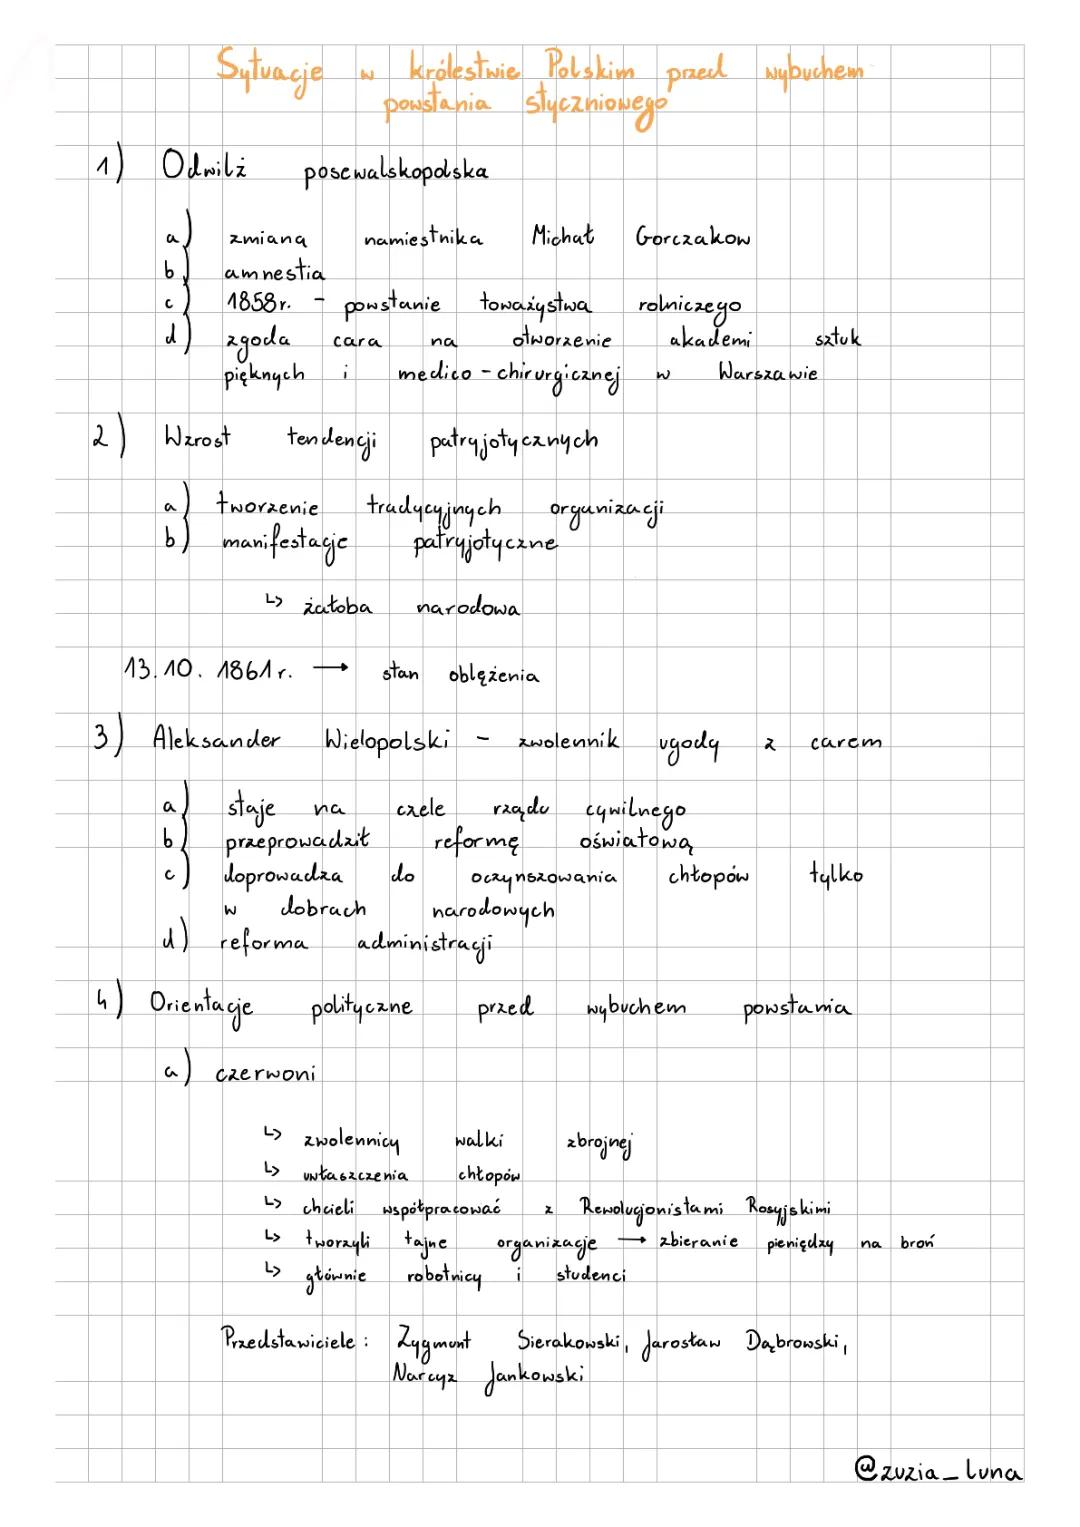 Sytuacje w królestwie Polskim przed wybuchem
powstania styczniowego
1) Odwilż posewalskopolska
a) zmiana namiestnika Michał Gorczakow
b) amnestia
c) 1858r. - powstanie toważystwa rolniczego
d) zgoda cara na otworzenie akademi sztuk
pięknych i medico - chirurgicznej w Warszawie
2) Wzrost tendencji patryjotycznych
a) tworzenie tradycyjnych organizacji
b) manifestacje patryjotyczne
↳ żałoba narodowa
13.10. 1861r. → stan oblężenia
3) Aleksander Wielopolski - zwolennik ugody z carem
a) staje na czele rządu cywilnego
b) przeprowadził reformę oświatową
c) doprowadza do oczynszowania chłopów tylko
w dobrach narodowych
d) reforma administracji
4) Orientacje polityczne przed wybuchem powstania
a) czerwoni
↳ zwolennicy walki zbrojnej
↳ uwłaszczenia chłopów
↳ chcieli współpracować z Rewolucjonistami Rosyjskimi
↳ tworzyli tajne organizacje → zbieranie pieniędzy na broń
↳ głównie robotnicy i studenci
Przedstawiciele : Zygmunt Sierakowski, Jarosław Dąbrowski,
Narcyz Jankowski
@zuzia_luna